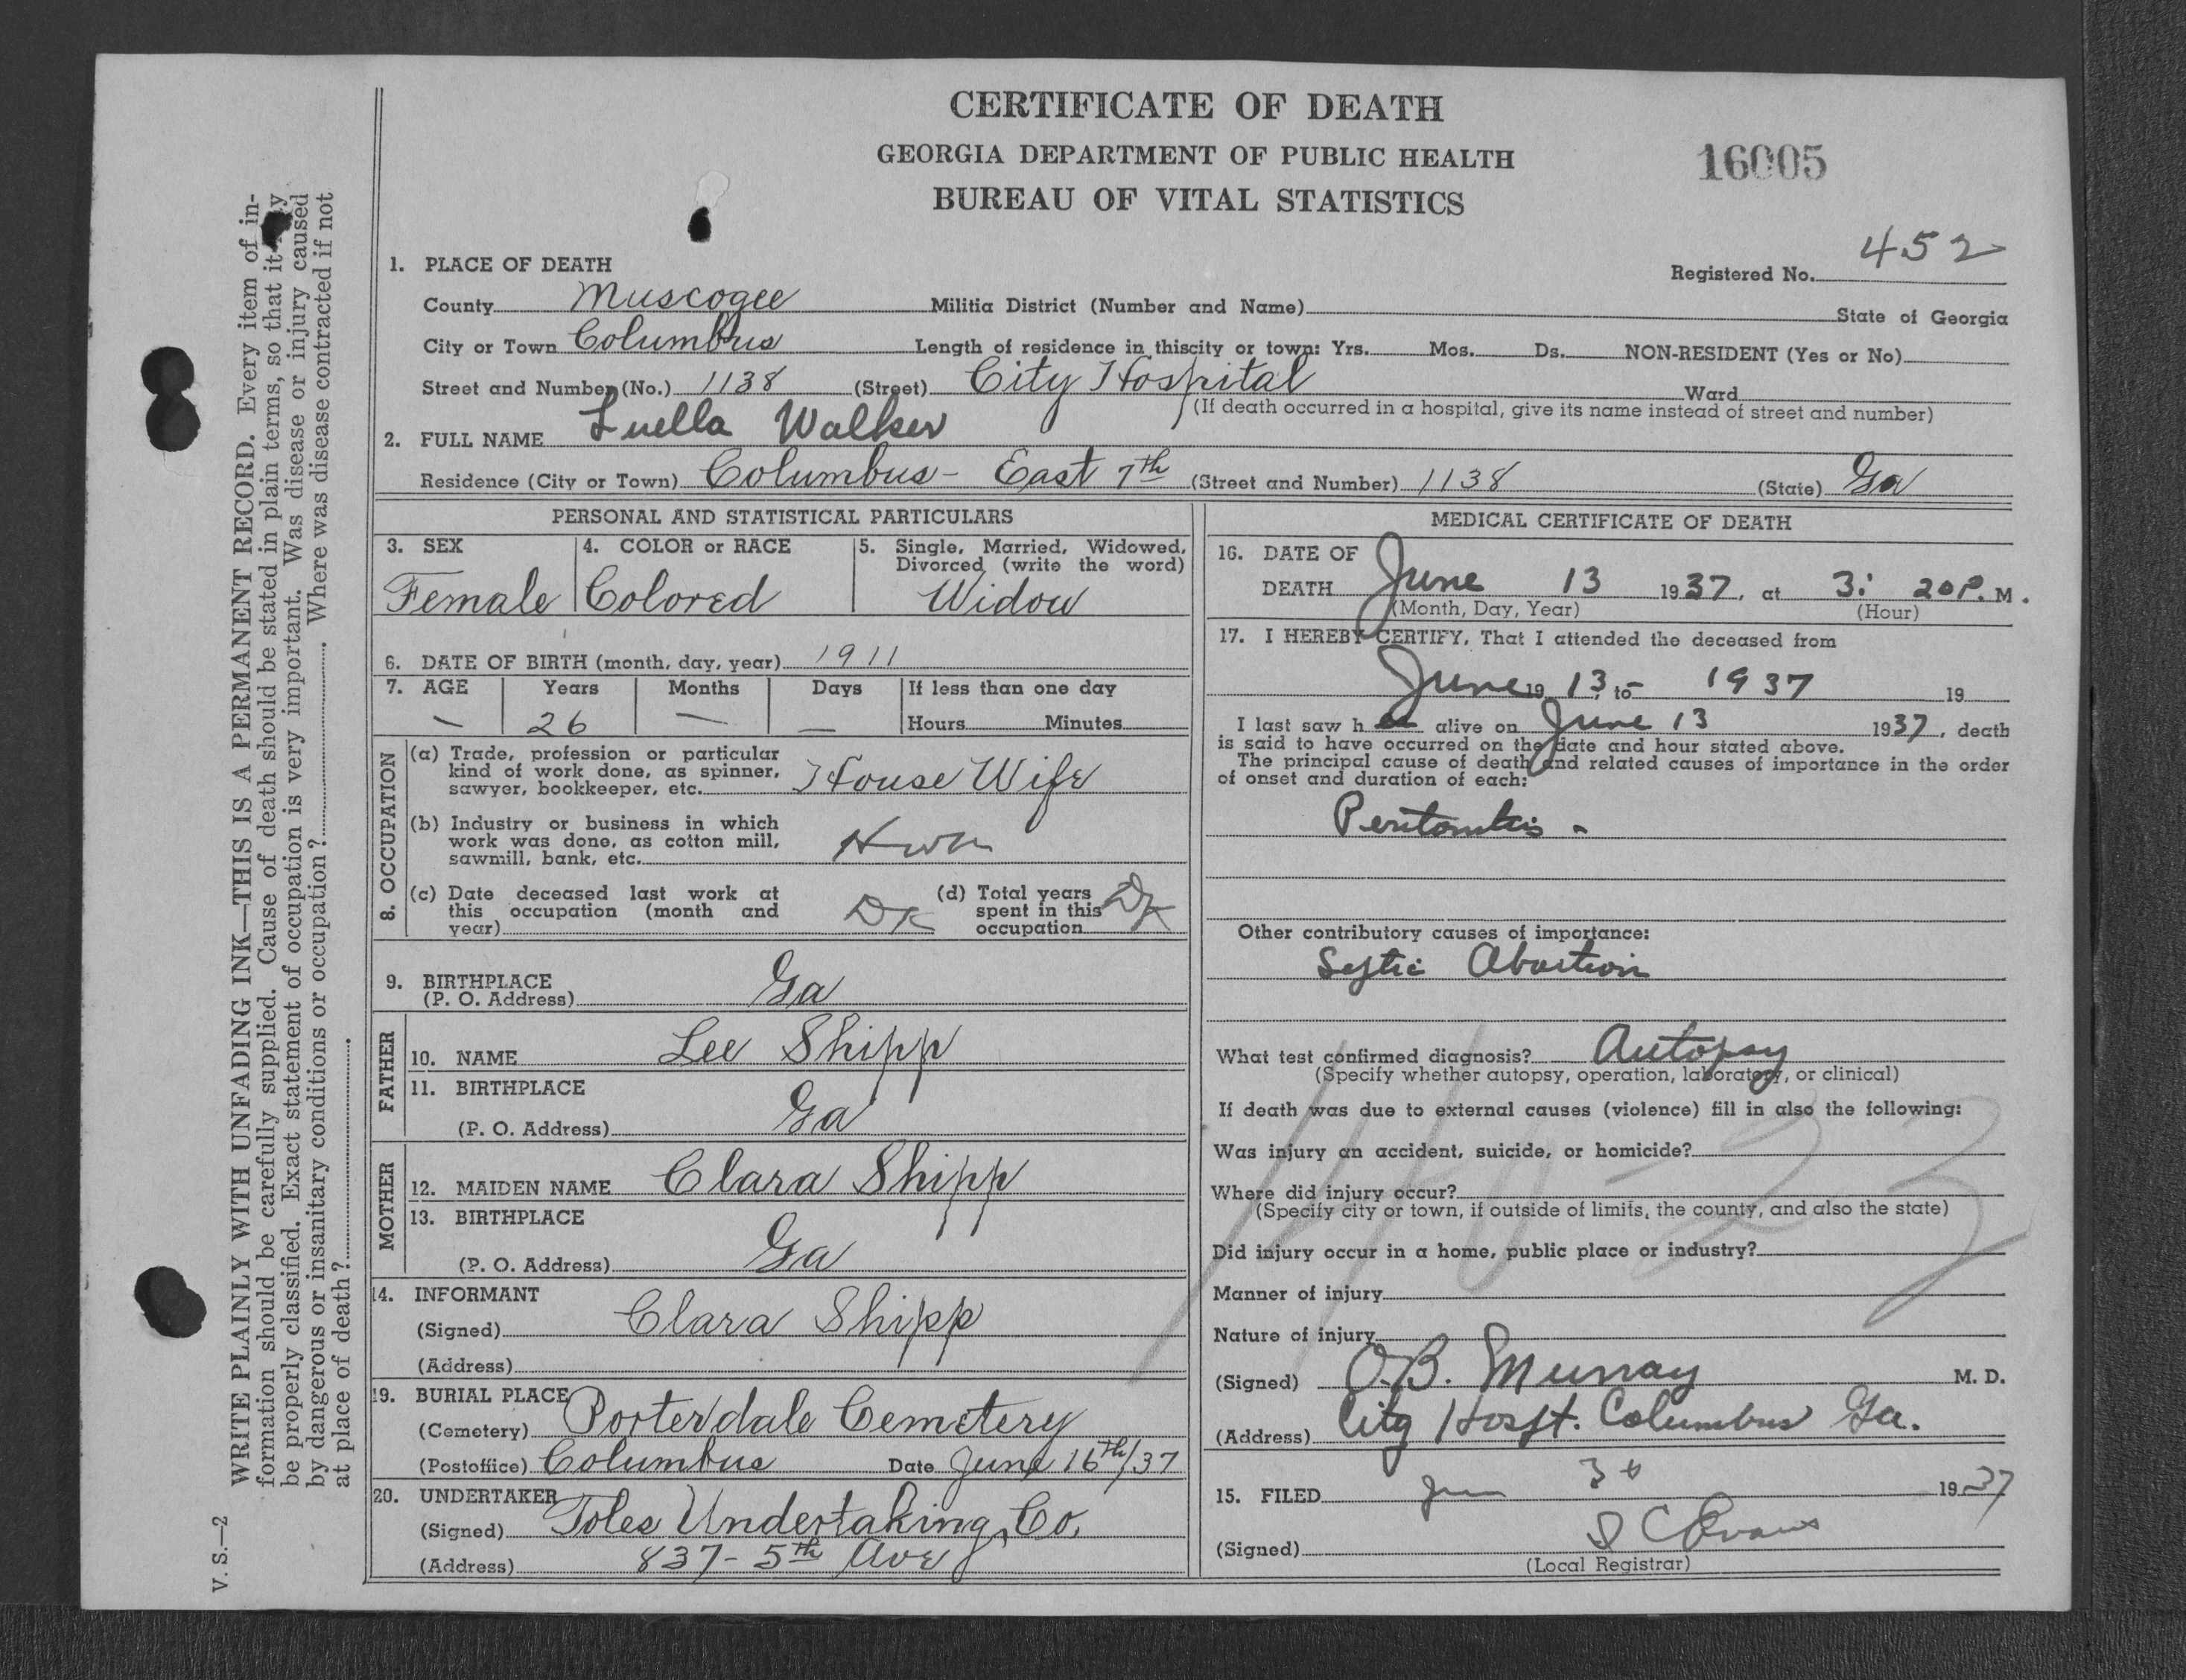 CERTIFICATE OF DEATH
GEORGIA DEPARTMENT OF PUBLIC HEALTH
BUREAU OF VITAL STATISTICS
16005
Registered No. 452
1. PLACE OF DEATH
County Muscogee Militia District (Number and Name) State of Georgia
City or Town Columbus Length of residence in thiscity or town: Yrs. Mos. Ds. NON-RESIDENT (Yes or No)
Street and Number (No.) 1138 (Street) City Hospital Ward
(If death occurred in a hospital, give its name instead of street and number)
2. FULL NAME Luella Walker
Residence (City or Town) Columbus - East 7th (Street and Number) 1138 (State) Ga
PERSONAL AND STATISTICAL PARTICULARS
3. SEX 4. COLOR or RACE 5. Single, Married, Widowed,
Divorced (write the word)
Female Colored Widow
6. DATE OF BIRTH (month, day, year) 1911
7. AGE Years Months Days If less than one day
— 26 — — Hours Minutes
8. OCCUPATION
(a) Trade, profession or particular
kind of work done, as spinner,
sawyer, bookkeeper, etc. House Wife
(b) Industry or business in which
work was done, as cotton mill,
sawmill, bank, etc.
(c) Date deceased last work at
this occupation (month and
year) DK
(d) Total years
spent in this
occupation DK
9. BIRTHPLACE
(P. O. Address) Ga
FATHER
10. NAME Lee Shipp
11. BIRTHPLACE
(P. O. Address) Ga
MOTHER
12. MAIDEN NAME Clara Shipp
13. BIRTHPLACE
(P. O. Address) Ga
14. INFORMANT
(Signed) Clara Shipp
(Address)
19. BURIAL PLACE
(Cemetery) Porterdale Cemetery
(Postoffice) Columbus Date June 16th/37
20. UNDERTAKER
(Signed) Toles Undertaking Co.
(Address) 837 - 5th Ave
MEDICAL CERTIFICATE OF DEATH
16. DATE OF
DEATH June 13 1937, at 3: 20 P. M.
(Month, Day, Year) (Hour)
17. I HEREBY CERTIFY, That I attended the deceased from
June 19 13, to 1937 19
I last saw h er alive on June 13 1937, death
is said to have occurred on the date and hour stated above.
The principal cause of death and related causes of importance in the order
of onset and duration of each:
Peritonitis -
Other contributory causes of importance:
Septic Abortion
What test confirmed diagnosis? Autopsy
(Specify whether autopsy, operation, laboratory, or clinical)
If death was due to external causes (violence) fill in also the following:
Was injury an accident, suicide, or homicide?
Where did injury occur?
(Specify city or town, if outside of limits, the county, and also the state)
Did injury occur in a home, public place or industry?
Manner of injury
Nature of injury
(Signed) O.B. Murray M. D.
(Address) City Hospt. Columbus Ga.
15. FILED Jun 30 1937
(Signed) Evans
(Local Registrar)
WRITE PLAINLY WITH UNFADING INK—THIS IS A PERMANENT RECORD. Every item of in-
formation should be carefully supplied. Cause of death should be stated in plain terms, so that it
be properly classified. Exact statement of occupation is very important. Was disease or injury caused
by dangerous or insanitary conditions or occupation? Where was disease contracted if not
at place of death?
V. S.—2